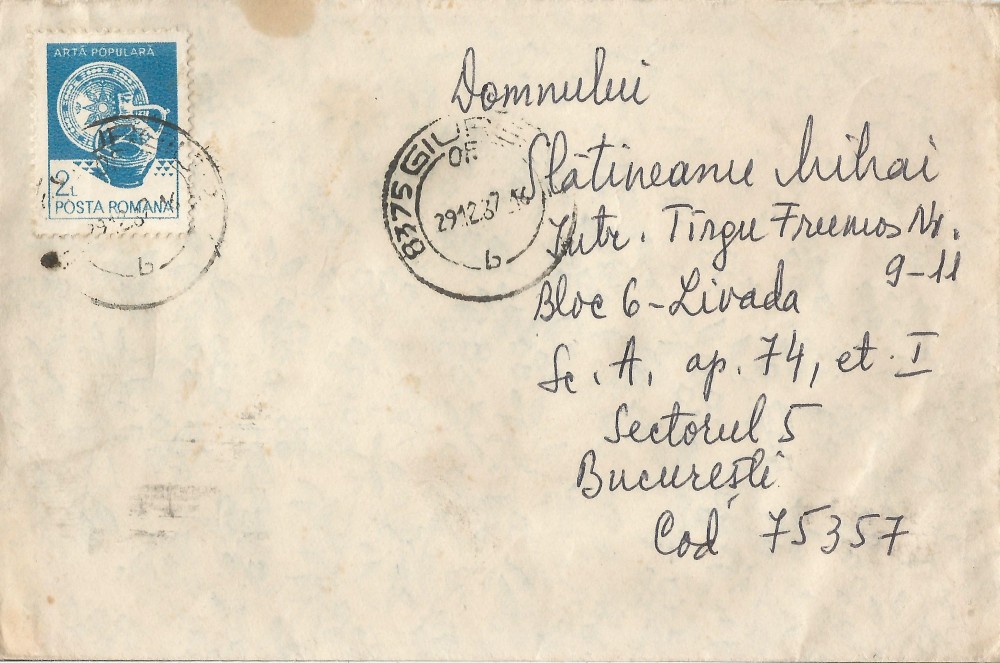 ARTĂ POPULARĂ
2L
POSTA ROMANA
8375 GIUR
OF
29.12.87.16
b
29.12.87.16
b
Domnului
Slătineanu Mihai
Intr. Tîrgu Frumos Nr.
9-11
Bloc 6-Livada
Sc. A, ap. 74, et. I
Sectorul 5
București
Cod 75357